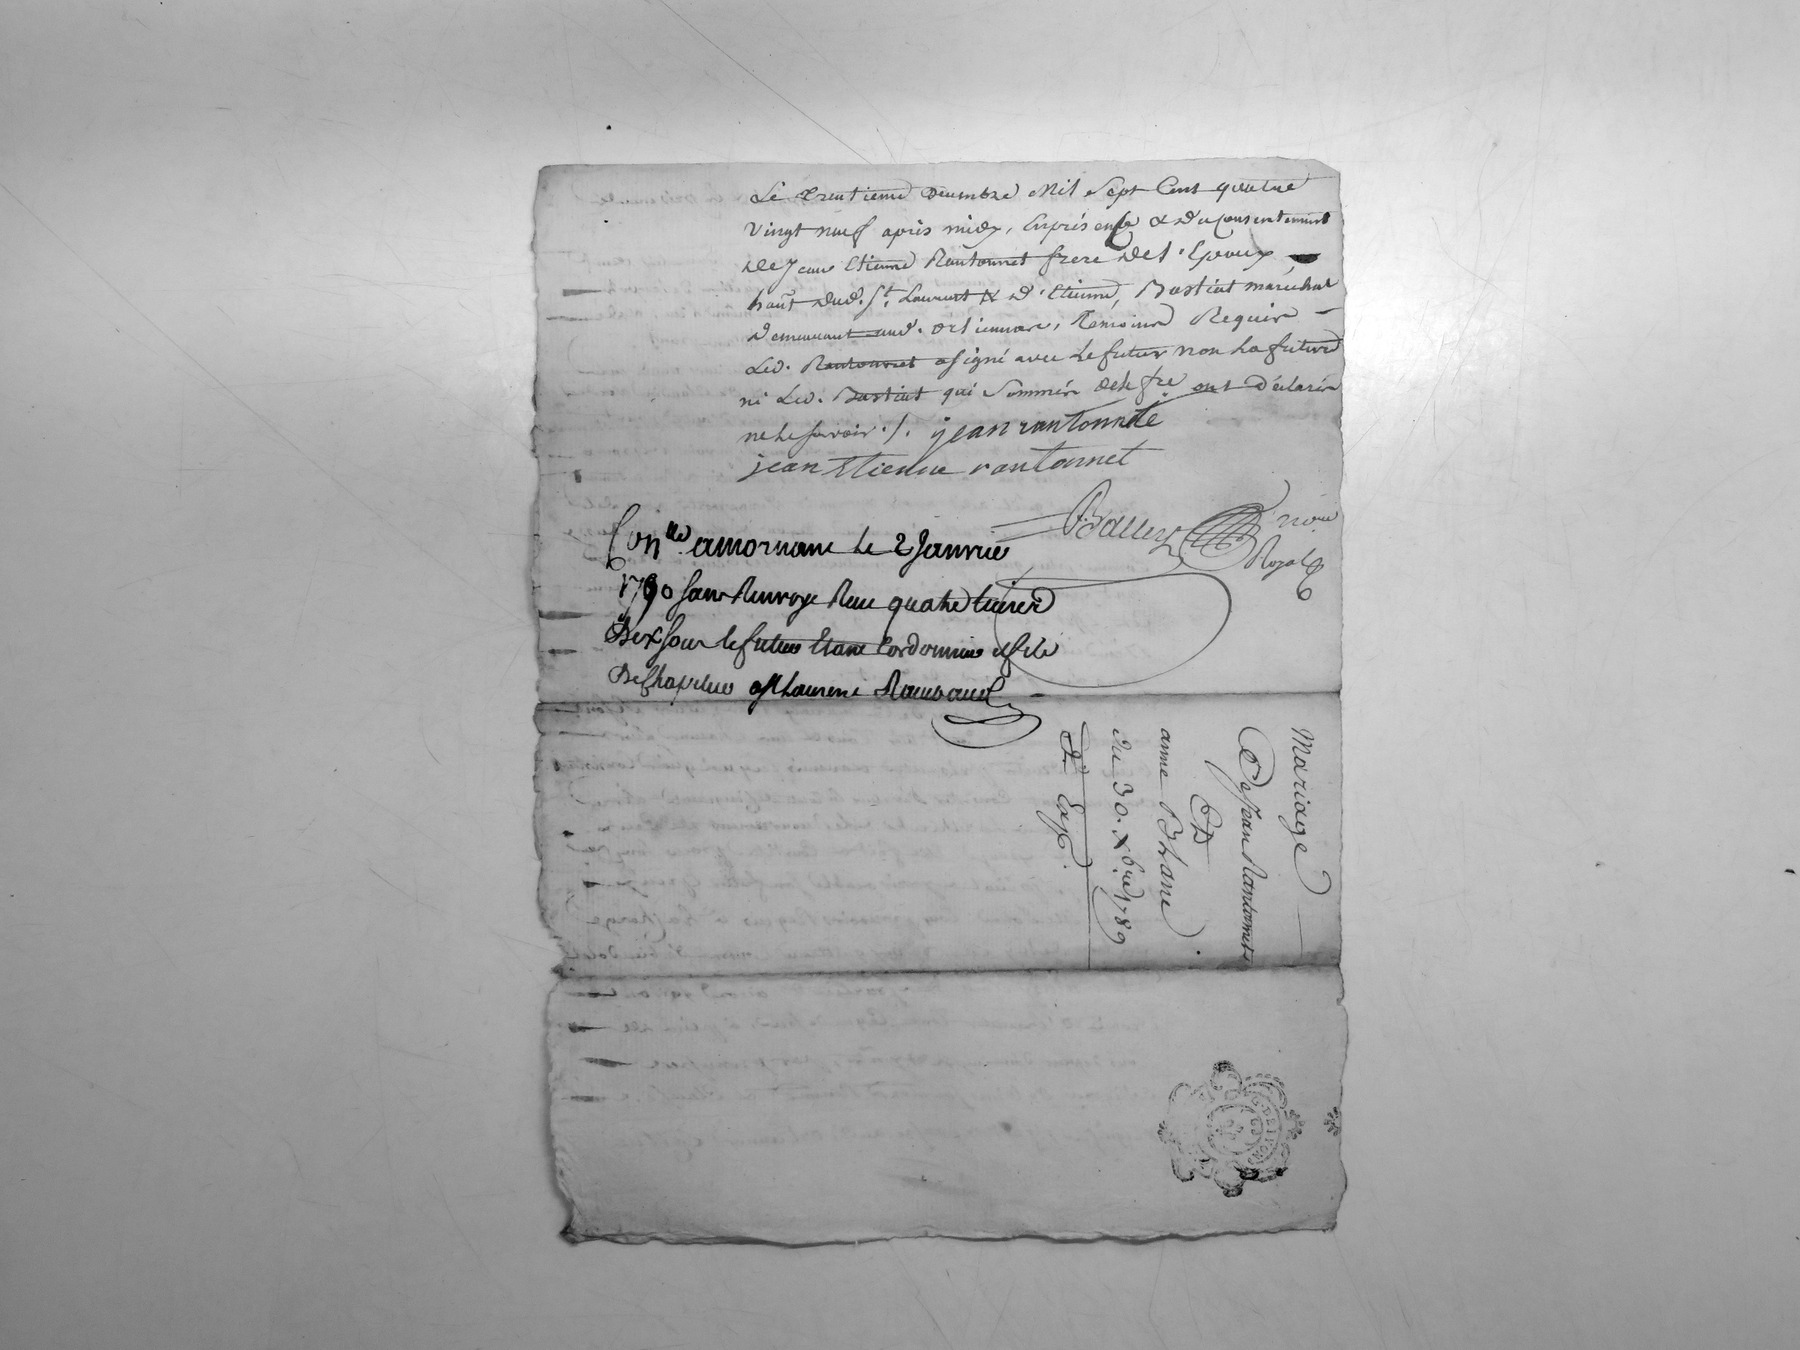 Le trentieme decembre Mil Sept Cent quatre
vingt neuf après midy, En présence & du Consentement
de Jean Etienne Rantonnet frere de l'Epoux
hant dud. St. Laurent & d'Etienne, Bastiat maréchal
demeurant aud. témoins Requis -
Led. Rantonnet a signé avec le futur non la future
ni Led. Bastiat qui Sommés de le fre. ont déclarés
ne le savoir ./. jean rantonnete
jean Etienne rantonnet
Balley nore.
Royal
Conlle a mornant le 2 Janvier
1790 sans Renvoye Recu quatre Livres
Dix sous le futeur Etant Cordonnier et fils
De
Mariage
De Jean Rantonnet
Et
anne Blanc
Du 30. Xbre. 1789
Exp.